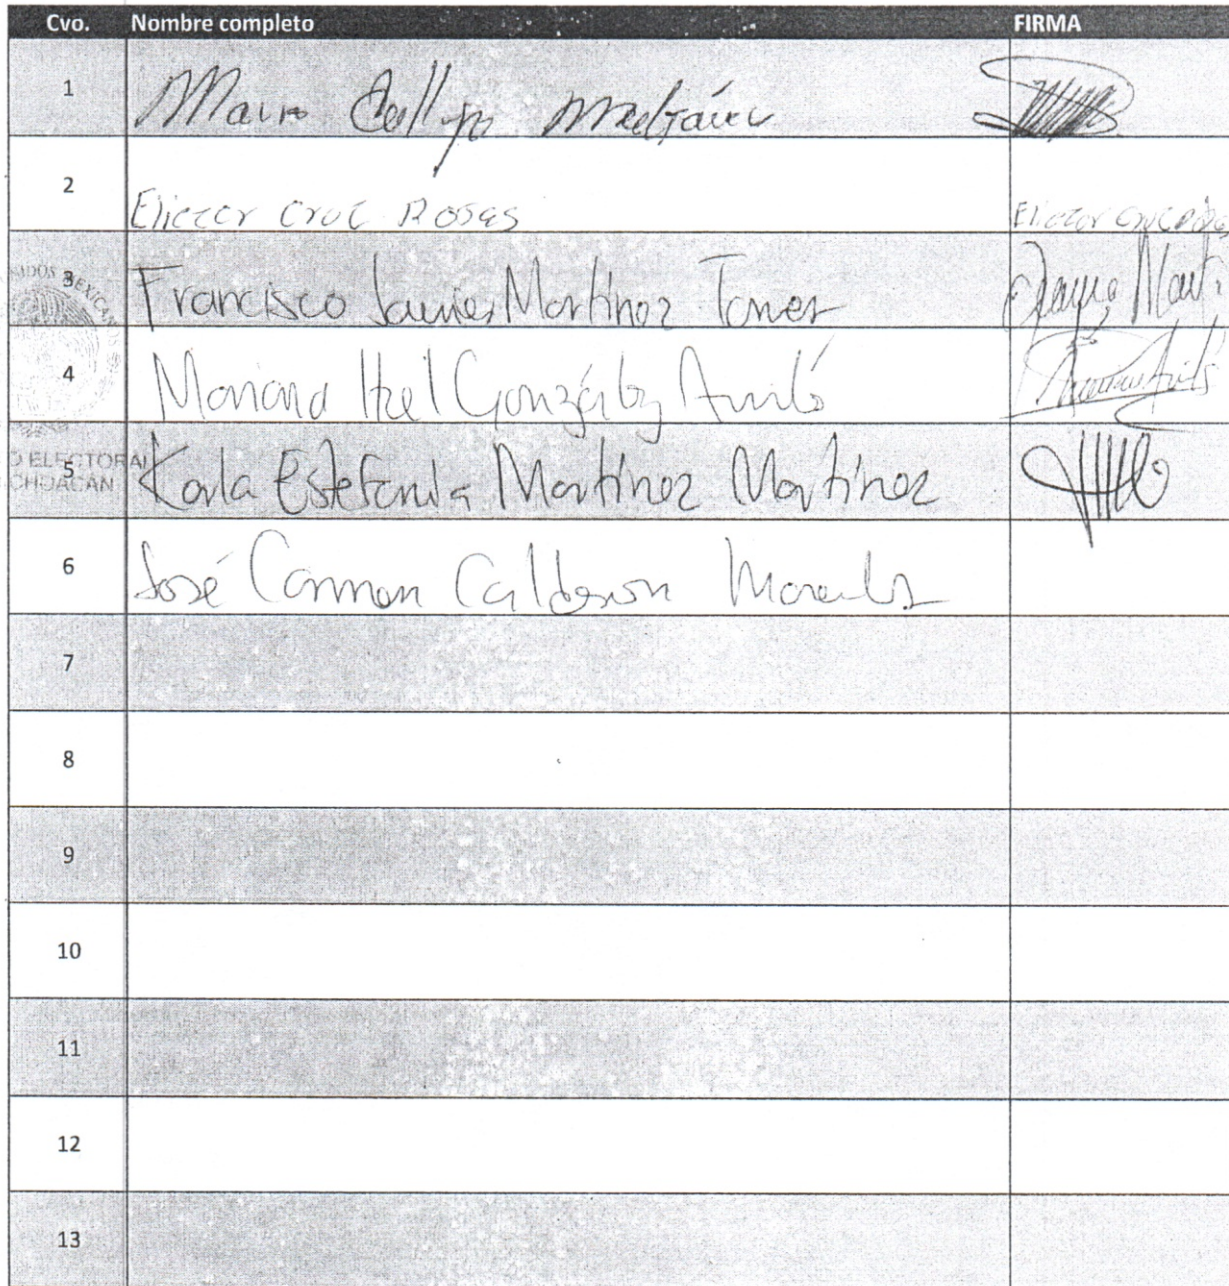 Cvo. Nombre completo FIRMA
1 Mauro
2 Eliezer Cruz Rosas Eliezer Cruz Rosas
3 Francisco Javier Martínez Torres
4 Mariana Itzel González Avilés
5 Karla Estefania Martínez Martínez
6 José Carmen Calderon Morales
7
8
9
10
11
12
13
ELECTORAL